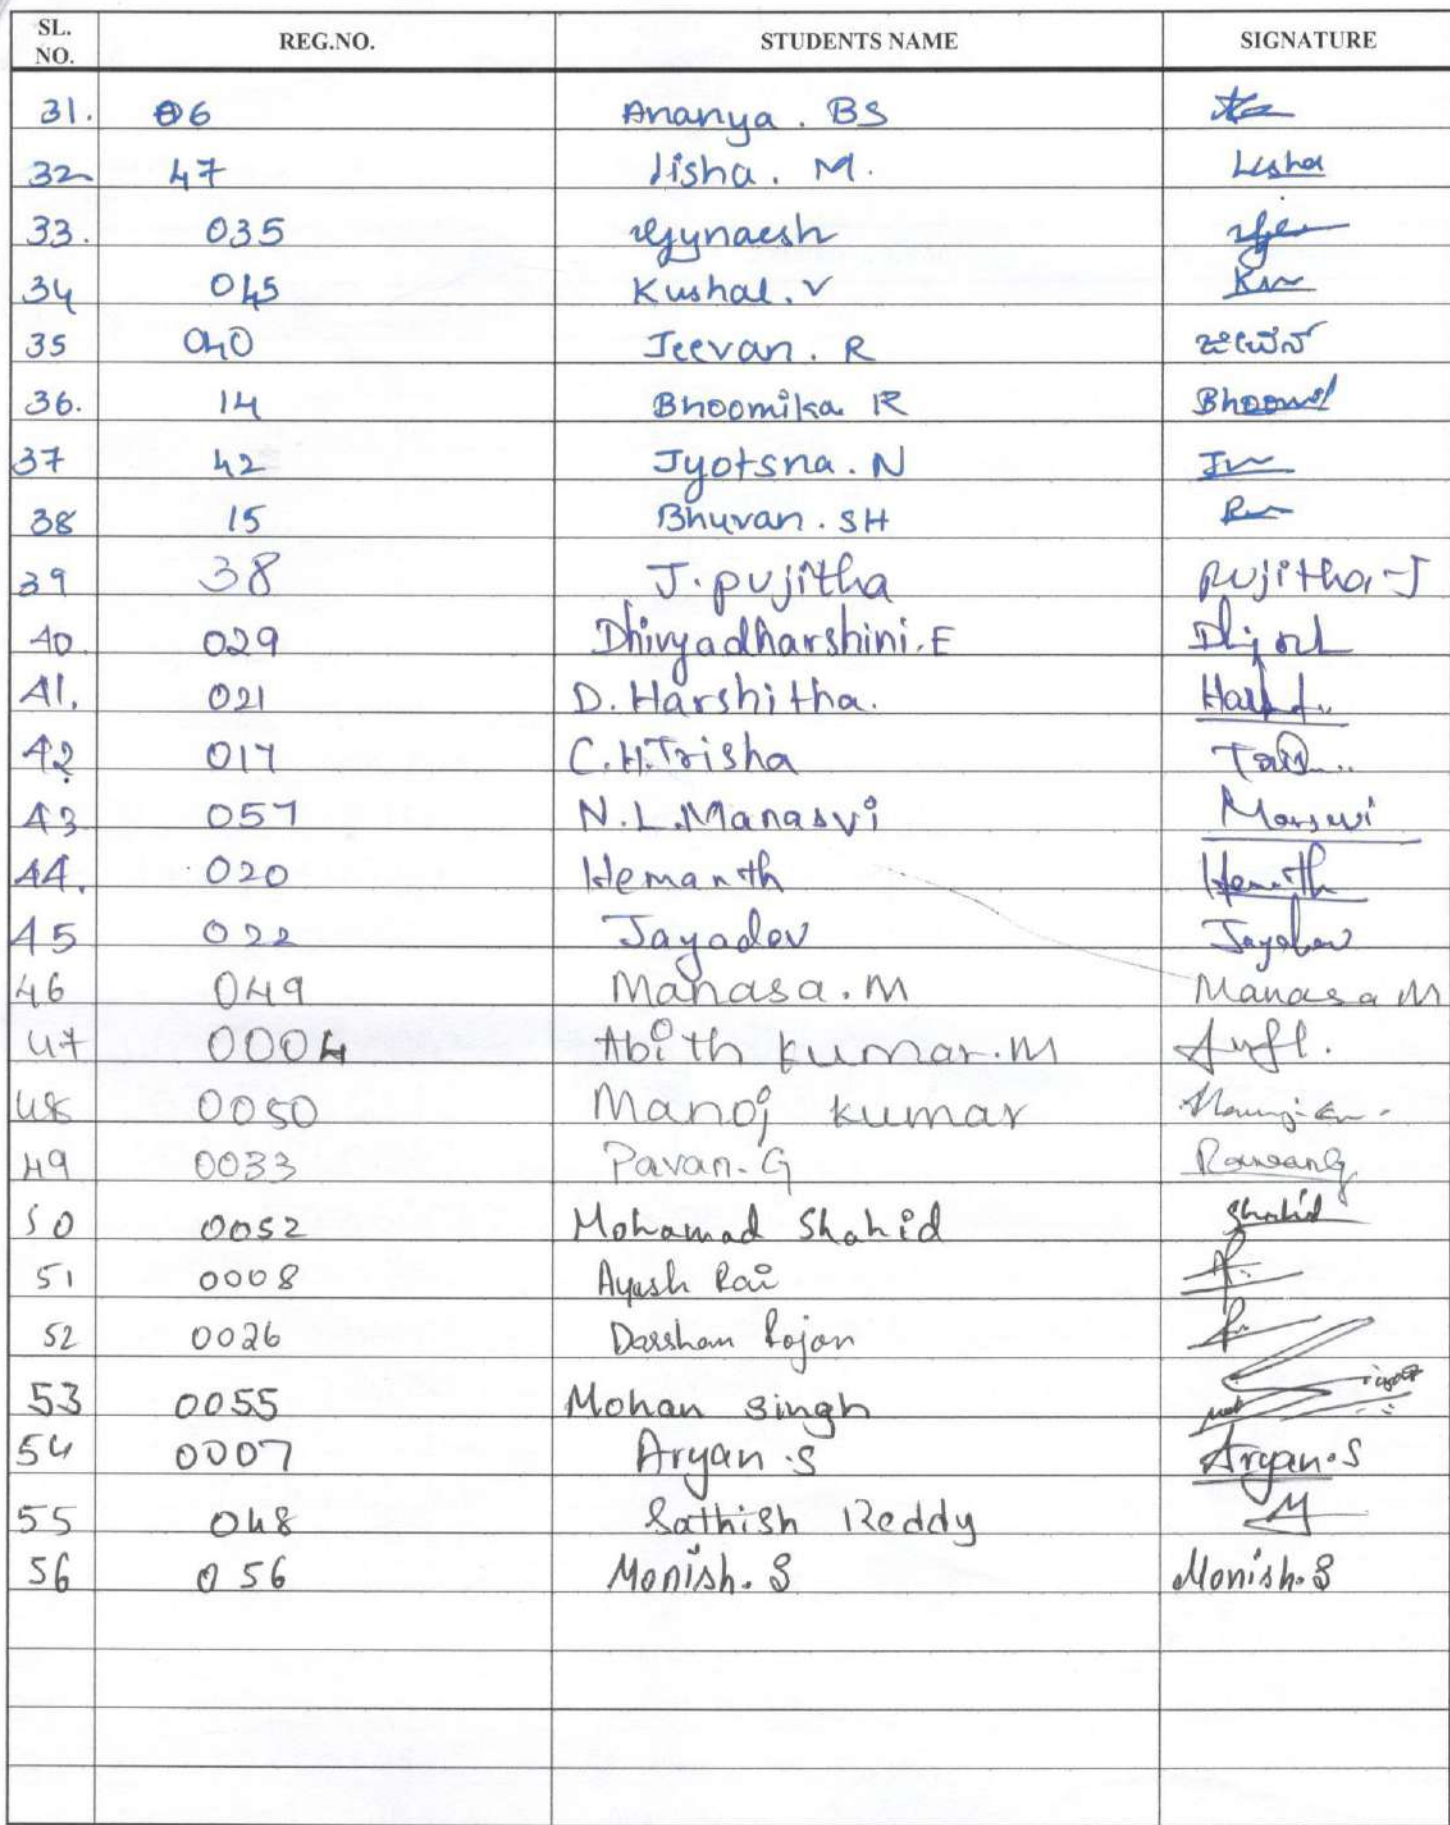 SL. NO. REG.NO. STUDENTS NAME SIGNATURE
31. 06 Ananya . BS
32 47 Lisha . M. Lisha
33. 035
34 045 Kushal . V
35 040 Jeevan . R ಜೀವನ್
36. 14 Bhoomika R
37 42 Jyotsna . N
38 15 Bhuvan . SH
39 38 J. pujitha pujitha-J
40. 029 Dhivyadharshini. E
41. 021 D. Harshitha.
42 017 C.H.Trisha
43 057 N.L.Manasvi
44. 020 Hemanth Hemanth
45 022 Jayadev Jayadev
46 049 Manasa . M Manasa M
47 0004 Abith kumar . M
48 0050 Manoj kumar
49 0033 Pavan. G Pavan G
50 0052 Mohamad Shahid Shahid
51 0008 Ayush Rai
52 0026 Darshan Rajan
53 0055 Mohan Singh
54 0007 Aryan . S Aryan . S
55 048 Sathish Reddy
56 056 Monish. S Monish. S